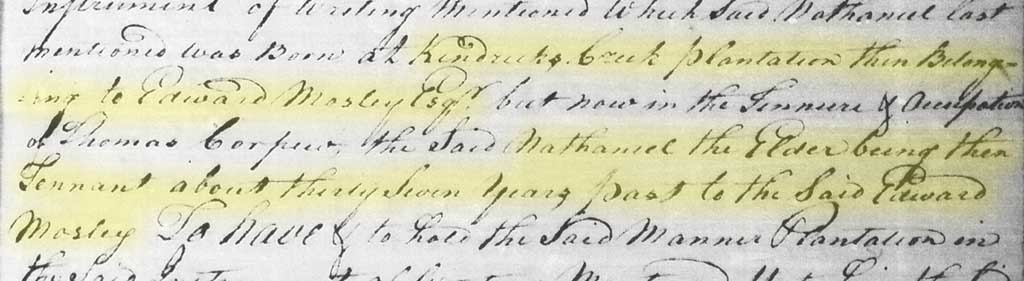 Instrument of Writing Mentioned Which Said Nathaniel last
mentioned was Born at Kindricks Creek plantation then Belong=
ing to Edward Mosley Esqr. but now in the Tennure & Occupation
of Thomas Corprew, the Said Nathaniel the Elder being then
Tennant about thirty Seven Years past to the Said Edward
Mosley To have & to hold the Said Manner Plantation in
the Said